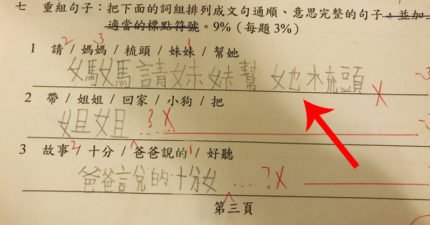 七 重組句子：把下面的詞組排列成文句通順、意思完整的句子，並加
適當的標點符號。9%（每題3%）
1 請 / 媽媽 / 梳頭 / 妹妹 / 幫她
媽媽請妹妹幫 她梳頭
2 帶 / 姐姐 / 回家 / 小狗 / 把
姐姐 ?
3 故事 / 十分 / 爸爸說的 / 好聽
爸爸說的十分女....?
第三頁